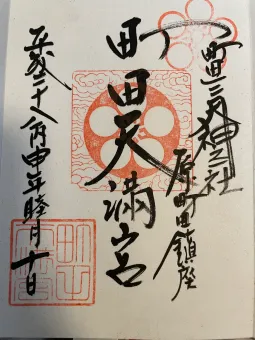 町田三天神三社
原町田鎮座
町田天満宮
平成二十八丙申年睦月十日